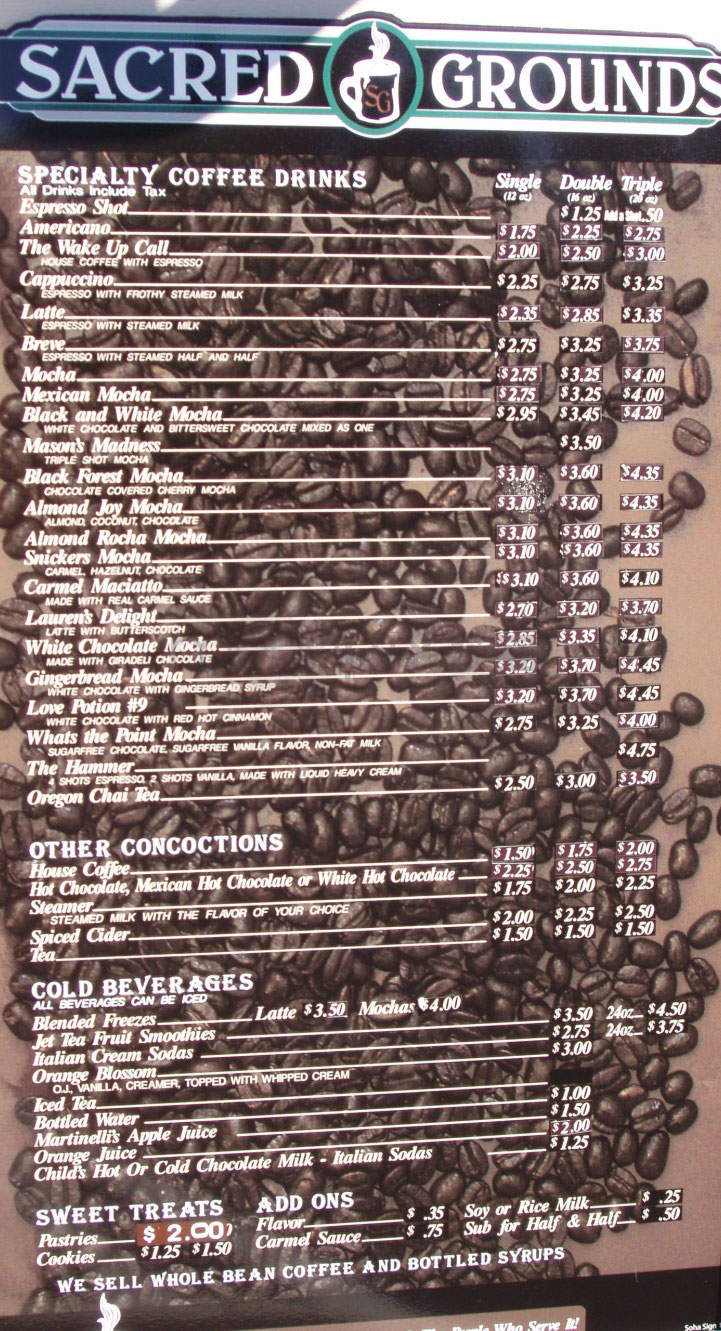 SACRED SG GROUNDS
SPECIALTY COFFEE DRINKS Single Double Triple
All Drinks Include Tax (12 oz) (16 oz) (20 oz)
Espresso Shot $1.25 Add a Shot .50
Americano $1.75 $2.25 $2.75
The Wake Up Call $2.00 $2.50 $3.00
HOUSE COFFEE WITH ESPRESSO
Cappuccino $2.25 $2.75 $3.25
ESPRESSO WITH FROTHY STEAMED MILK
Latte $2.35 $2.85 $3.35
ESPRESSO WITH STEAMED MILK
Breve $2.75 $3.25 $3.75
ESPRESSO WITH STEAMED HALF AND HALF
Mocha $2.75 $3.25 $4.00
Mexican Mocha $2.75 $3.25 $4.00
Black and White Mocha $2.95 $3.45 $4.20
WHITE CHOCOLATE AND BITTERSWEET CHOCOLATE MIXED AS ONE
Mason's Madness $3.50
TRIPLE SHOT MOCHA
Black Forest Mocha $3.10 $3.60 $4.35
CHOCOLATE COVERED CHERRY MOCHA
Almond Joy Mocha $3.10 $3.60 $4.35
ALMOND, COCONUT, CHOCOLATE
Almond Rocha Mocha $3.10 $3.60 $4.35
Snickers Mocha $3.10 $3.60 $4.35
CARMEL, HAZELNUT, CHOCOLATE
Carmel Maciatto $3.10 $3.60 $4.10
MADE WITH REAL CARMEL SAUCE
Lauren's Delight $2.70 $3.20 $3.70
LATTE WITH BUTTERSCOTCH
White Chocolate Mocha $2.85 $3.35 $4.10
MADE WITH GIRADELI CHOCOLATE
Gingerbread Mocha $3.20 $3.70 $4.45
WHITE CHOCOLATE WITH GINGERBREAD SYRUP
Love Potion #9 $3.20 $3.70 $4.45
WHITE CHOCOLATE WITH RED HOT CINNAMON
Whats the Point Mocha $2.75 $3.25 $4.00
SUGARFREE CHOCOLATE, SUGARFREE VANILLA FLAVOR, NON-FAT MILK
The Hammer $4.75
4 SHOTS ESPRESSO, 2 SHOTS VANILLA, MADE WITH LIQUID HEAVY CREAM
Oregon Chai Tea $2.50 $3.00 $3.50
OTHER CONCOCTIONS
House Coffee $1.50 $1.75 $2.00
Hot Chocolate, Mexican Hot Chocolate or White Hot Chocolate $2.25 $2.50 $2.75
Steamer $1.75 $2.00 $2.25
STEAMED MILK WITH THE FLAVOR OF YOUR CHOICE
Spiced Cider $2.00 $2.25 $2.50
Tea $1.50 $1.50 $1.50
COLD BEVERAGES
ALL BEVERAGES CAN BE ICED
Blended Freezes Latte $3.50 Mochas $4.00
Jet Tea Fruit Smoothies $3.50 24oz $4.50
Italian Cream Sodas $2.75 24oz $3.75
Orange Blossom $3.00
O.J., VANILLA, CREAMER, TOPPED WITH WHIPPED CREAM
Iced Tea
Bottled Water $1.00
Martinelli's Apple Juice $1.50
Orange Juice $2.00
Child's Hot Or Cold Chocolate Milk - Italian Sodas $1.25
SWEET TREATS
Pastries $ 2.00
Cookies $1.25 $1.50
ADD ONS
Flavor $ .35
Carmel Sauce $ .75
Soy or Rice Milk $ .25
Sub for Half & Half $ .50
WE SELL WHOLE BEAN COFFEE AND BOTTLED SYRUPS
Who Serve It!
Soha Sign